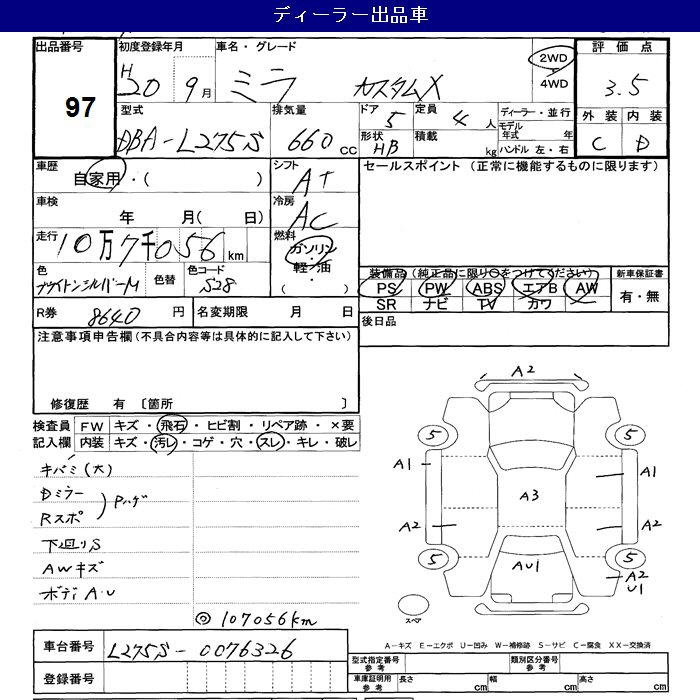 ディーラー出品車
出品番号
97
初度登録年月
H20 9月
車名・グレード
ミラ カスタムX
2WD
4WD
評価点
3.5
外装 内装
C D
型式
DBA-L275S
排気量
660 cc
ドア
5
定員
4 人
形状
HB
積載
kg
ディーラー・並行
モデル年式 年
ハンドル 左・右
車歴
自家用・( )
シフト
AT
セールスポイント (正常に機能するものに限ります)
車検
年 月( 日)
冷房
AC
走行
10万7千056 km
燃料
ガソリン
軽・油
色
色替
色コード
S28
装備品 (純正品に限り○をつけてください)
PS PW ABS エアB AW
SR ナビ TV カワ
新車保証書
有・無
R券
8640 円
名変期限 月 日
後日品
注意事項申告欄 (不具合内容等は具体的に記入して下さい)
修復歴 有 〔箇所 〕
検査員 FW キズ・飛石・ヒビ割・リペア跡・×要
記入欄 内装 キズ・汚レ・コゲ・穴・スレ・キレ・破レ
キバミ(大)
Dミラー
Rスポ
Pハゲ
下廻りS
AWキズ
ボディA・U
◎107056km
A2
5 5
A1 A1
A3
A2 A2
5 5
AU1
A2
U1
スペア
A-キズ E-エクボ U-凹み W-補修跡 S-サビ C-腐食 XX-交換済
車台番号 L275S-0076326
登録番号
型式指定番号 参考
類別区分番号 参考
車庫証明用 参考
長さ cm 幅 cm 高さ cm